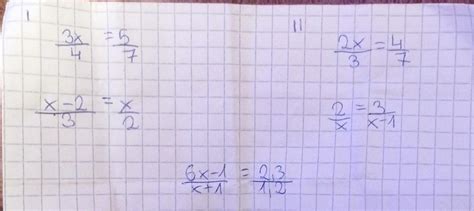 I
3x/4 = 5/7
(x-2)/3 = x/2
II
2x/3 = 4/7
2/x = 3/(x-1)
(6x-1)/(x+1) = 2,3/1,2